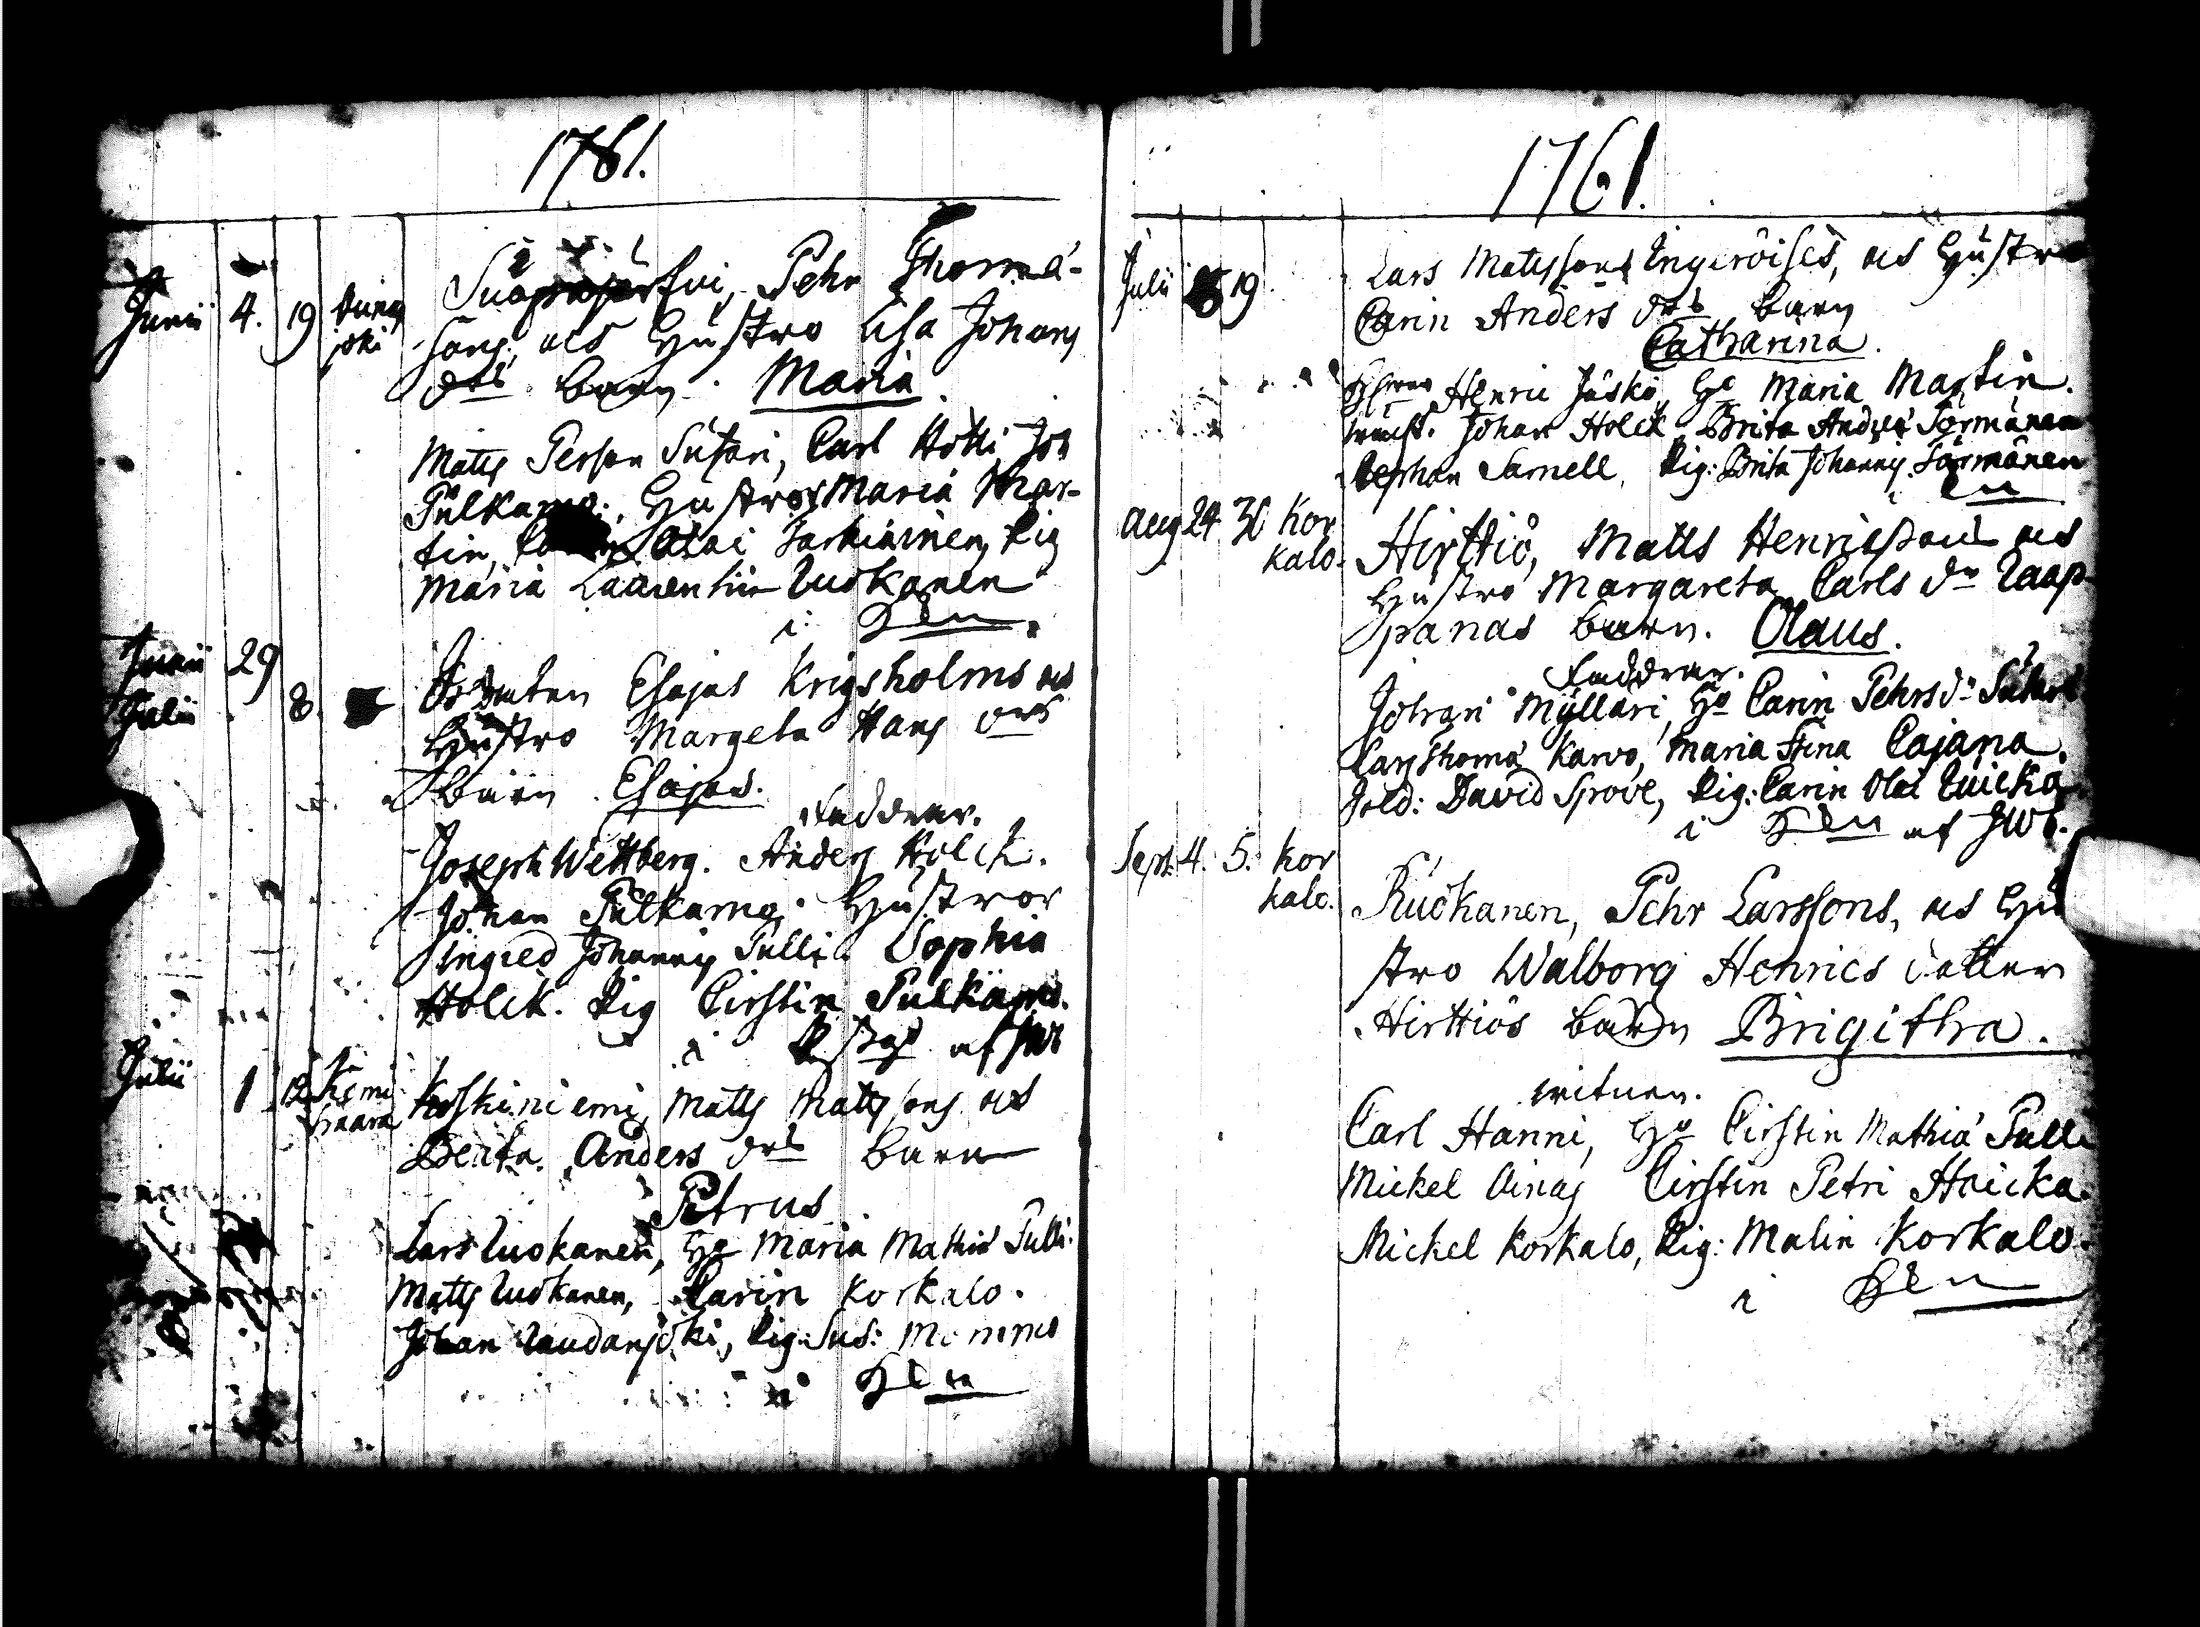 1761.
Junii 4. 19 joki
Pehr Thomæ-
sons, och Hustro Lisa Johans
drs barn. Maria
Matts Persson Sutari, Carl Hotti, Joh
Pulkamo. Hustror Maria Mar-
tin, Olai Tarkiainen, Pig
Maria Laurentii Luokanen
i Kem.
Junii 29
Julii 8.
Esajas Krigsholms och
Hustro Margeta Hans drs
barn Esajas.
Faddrar.
Joseph Wettberg. Anders Holck.
Johan Pulkamo. Hustror
Ingred Johannis Pulli. Sophia
Holck. Pig Cirstin Pulkamo.
i af JW
Julii 1 12 Kemi
haara
Koskiniemi, Matts Mattssons och
Beata Anders drs barn
Petrus
Lars Luokanen, Ho Maria Mathiæ Pulli.
Matts Luokanen, Carin Korkalo.
Johan Raudanjoki, Pig: Sus:
i Kem
1761.
Julii 19
Lars Matssons Ingeröises, och Hustro
Carin Anders drs barn
Catharina.
Henric Jusko, Ho Maria Martin.
Johan Holck, Brita Törmänen
Stephan Sarnell, Pig: Brita Johannis Törmänen
i Kem
Aug 24 30 Kor
kalo.
Hirttiö, Matts Henrissons och
Hustro Margareta Carls dr Laap-
panas barn. Olaus.
Faddrar.
Johan Myllari, Ho Carin Pehrs dr
Lars Thomæ Karvo, Maria Stina Cajana.
Sold: David Sprove, Pig: Carin Olai
i Kem af JW.
Sept. 4. 5. Kor
kalo.
Ruokanen, Pehr Larssons, och Hu
stro Walborg Henrics dotter
Hirttiös barn Brigitha.
witnen.
Carl Hanni, Ho Cirstin Mathiæ Pulli
Mickel Ainas Cirstin Petri Hoicka.
Mickel Korkalo, Pig: Malin Korkalo.
i Kem